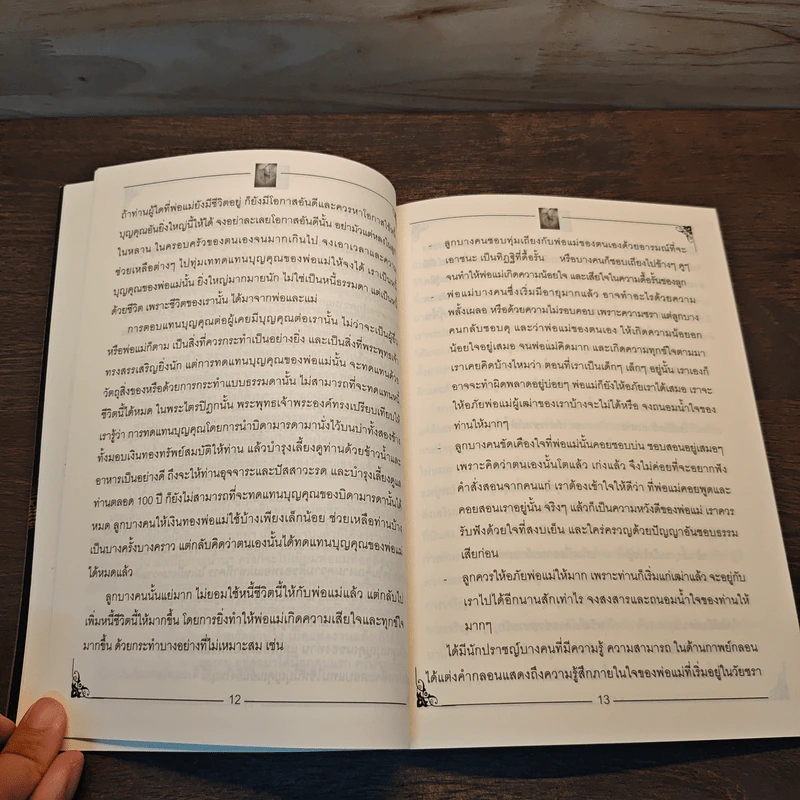 ถ้าท่านผู้ใดที่พ่อแม่ยังมีชีวิตอยู่ ก็ยังมีโอกาสอันดีและควรหาโอกาสใช้หนี้
บุญคุณอันยิ่งใหญ่นี้ให้ได้ จงอย่าละเลยโอกาสอันดีนั้น อย่ามัวแต่หลง
ในหลาน ในครอบครัวของตนเองจนมากเกินไป จงเอาเวลาและความ
ช่วยเหลือต่างๆ ไปทุ่มเททดแทนบุญคุณของพ่อแม่ให้จงได้ เราเป็นหนี้
บุญคุณของพ่อแม่นั้น ยิ่งใหญ่มากมายนัก ไม่ใช่เป็นหนี้ธรรมดา แต่เป็นหนี้
ด้วยชีวิต เพราะชีวิตของเรานั้น ได้มาจากพ่อและแม่
การตอบแทนบุญคุณต่อผู้เคยมีบุญคุณต่อเรานั้น ไม่ว่าจะเป็นผู้อื่น
หรือพ่อแม่ก็ตาม เป็นสิ่งที่ควรกระทำเป็นอย่างยิ่ง และเป็นสิ่งที่พระพุทธเจ้า
ทรงสรรเสริญยิ่งนัก แต่การทดแทนบุญคุณของพ่อแม่นั้น จะทดแทนด้วย
วัตถุสิ่งของหรือด้วยการกระทำแบบธรรมดานั้น ไม่สามารถที่จะทดแทนหนี้
ชีวิตนี้ได้หมด ในพระไตรปิฎกนั้น พระพุทธเจ้าพระองค์ทรงเปรียบเทียบให้
เรารู้ว่า การทดแทนบุญคุณโดยการนำบิดามารดามานั่งไว้บนบ่าทั้งสองข้าง
ทั้งมอบเงินทองทรัพย์สมบัติให้ท่าน แล้วบำรุงเลี้ยงดูท่านด้วยข้าวน้ำและ
อาหารเป็นอย่างดี ถึงจะให้ท่านอุจจาระและปัสสาวะรด และบำรุงเลี้ยงดูแล
ท่านตลอด 100 ปี ก็ยังไม่สามารถที่จะทดแทนบุญคุณของบิดามารดานั้นได้
หมด ลูกบางคนให้เงินทองพ่อแม่ใช้บ้างเพียงเล็กน้อย ช่วยเหลือท่านบ้าง
เป็นบางครั้งบางคราว แต่กลับคิดว่าตนเองนั้นได้ทดแทนบุญคุณของพ่อแม่
ได้หมดแล้ว
ลูกบางคนนั้นแย่มาก ไม่ยอมใช้หนี้ชีวิตนี้ให้กับพ่อแม่แล้ว แต่กลับไป
เพิ่มหนี้ชีวิตนี้ให้มากขึ้น โดยการยิ่งทำให้พ่อแม่เกิดความเสียใจและทุกข์ใจ
มากขึ้น ด้วยกระทำบางอย่างที่ไม่เหมาะสม เช่น
12
- ลูกบางคนชอบทุ่มเถียงกับพ่อแม่ของตนเองด้วยอารมณ์ที่จะ
เอาชนะ เป็นทิฏฐิที่ดื้อรั้น หรือบางคนก็ชอบเถียงไปข้างๆ คูๆ
จนทำให้พ่อแม่เกิดความน้อยใจ และเสียใจในความดื้อรั้นของลูก
- พ่อแม่บางคนซึ่งเริ่มมีอายุมากแล้ว อาจทำอะไรด้วยความ
พลั้งเผลอ หรือด้วยความไม่รอบคอบ เพราะความชรา แต่ลูกบาง
คนกลับชอบดุ และว่าพ่อแม่ของตนเอง ให้เกิดความน้อยอก
น้อยใจอยู่เสมอ จนพ่อแม่คิดมาก และเกิดความทุกข์ใจตามมา
เราเคยคิดบ้างไหมว่า ตอนที่เราเป็นเด็กๆ เล็กๆ อยู่นั้น เราเองก็
อาจจะทำผิดพลาดอยู่บ่อยๆ พ่อแม่ก็ยังให้อภัยเราได้เสมอ เราจะ
ให้อภัยพ่อแม่ผู้เฒ่าของเราบ้างจะไม่ได้หรือ จงถนอมน้ำใจของ
ท่านให้มากๆ
- ลูกบางคนขัดเคืองใจที่พ่อแม่นั้นคอยชอบบ่น ชอบสอนอยู่เสมอๆ
เพราะคิดว่าตนเองนั้นโตแล้ว เก่งแล้ว จึงไม่ค่อยที่จะอยากฟัง
คำสั่งสอนจากคนแก่ เราต้องเข้าใจให้ดีว่า ที่พ่อแม่คอยพูดและ
คอยสอนเราอยู่นั้น จริงๆ แล้วก็เป็นความหวังดีของพ่อแม่ เราควร
รับฟังด้วยใจที่สงบเย็น และใคร่ครวญด้วยปัญญาอันชอบธรรม
เสียก่อน
- ลูกควรให้อภัยพ่อแม่ให้มาก เพราะท่านก็เริ่มแก่เฒ่าแล้ว จะอยู่กับ
เราไปได้อีกนานสักเท่าไร จงสงสารและถนอมน้ำใจของท่านให้
มากๆ
ได้มีนักปราชญ์บางคนที่มีความรู้ ความสามารถ ในด้านกาพย์กลอน
ได้แต่งคำกลอนแสดงถึงความรู้สึกภายในใจของพ่อแม่ที่เริ่มอยู่ในวัยชรา
13